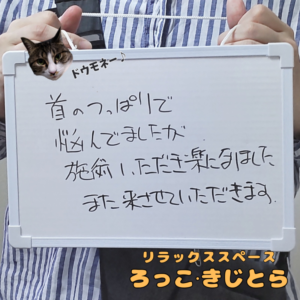 ドウモネー！
首のつっぱりで
悩んでましたが
施術いただき楽になりました
また来させていただきます。
リラックススペース
ろっこ・きじとら